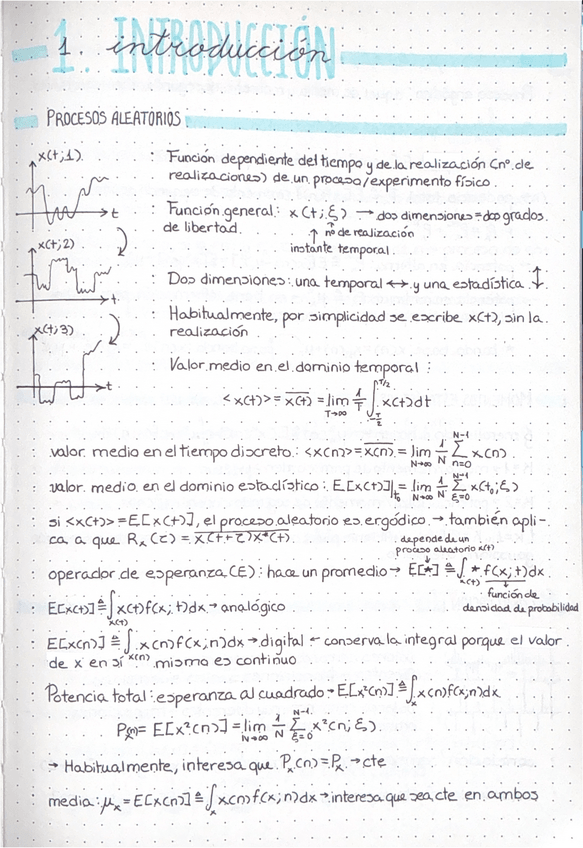 1. introducción
1. INTRODUCCIÓN
PROCESOS ALEATORIOS
x(t;1)
t
x(t;2)
t
x(t;3)
t
: Función dependiente del tiempo y de la realización (nº de
realizaciones) de un proceso/experimento físico.
: Función general: x(t;ξ) → dos dimensiones = dos grados
de libertad. ↑ nº de realización
instante temporal
: Dos dimensiones: una temporal ↔ y una estadística ↕
: Habitualmente, por simplicidad se escribe x(t), sin la
realización
: Valor medio en el dominio temporal:
<x(t)> = \overline{x(t)} = lim_{T→∞} 1/T ∫_{-T/2}^{T/2} x(t)dt
: valor medio en el tiempo discreto: <x(n)> = \overline{x(n)} = lim_{N→∞} 1/N Σ_{n=0}^{N-1} x(n)
: valor medio en el dominio estadístico: E[x(t)]|_{t₀} = lim_{N→∞} 1/N Σ_{ξ=0}^{N-1} x(t₀;ξ)
: si <x(t)> = E[x(t)], el proceso aleatorio es ergódico → también apli-
ca a que Rₓ(τ) = \overline{x(t+τ)x*(t)}
depende de un
proceso aleatorio x(t)
: operador de esperanza (E): hace un promedio → E[*] ≜ ∫_{x(t)} * f(x;t)dx
función de
densidad de probabilidad
: E[x(t)] ≜ ∫_{x(t)} x(t)f(x;t)dx → analógico
: E[x(n)] ≜ ∫_{x(n)} x(n)f(x;n)dx → digital - conserva la integral porque el valor
de x en sí misma es continuo
: Potencia total: esperanza al cuadrado → E[x²(n)] ≜ ∫_x x(n)f(x;n)dx
Pₓ(n) = E[x²(n)] = lim_{N→∞} 1/N Σ_{ξ=0}^{N-1} x²(n;ξ)
→ Habitualmente, interesa que Pₓ(n) = Pₓ → cte
: media: μₓ = E[x(n)] ≜ ∫_x x(n)f(x;n)dx → interesa que sea cte en ambos